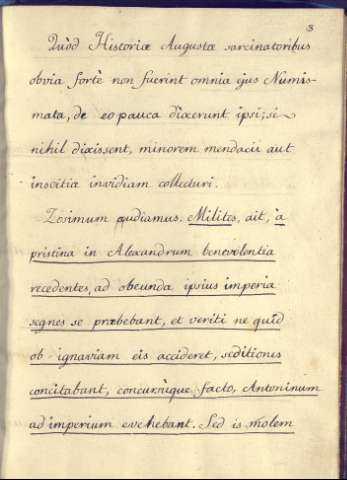 3
Quòd Historiæ Augustæ sarcinatoribus
obvia fortè non fuerint omnia ejus Numis-
mata, de eo pauca dixerunt ipsi; si
nihil dixissent, minorem mendacii aut
inscitiæ invidiam collecturi.
Zosimum audiamus. Milites, ait, à
pristina in Alexandrum benevolentia
recedentes, ad obeunda ipsius imperia
segnes se præbebant, et veriti ne quid
ob ignaviam eis accideret, seditiones
concitabant, concursuque facto, Antoninum
ad imperium evehebant. Sed is molem